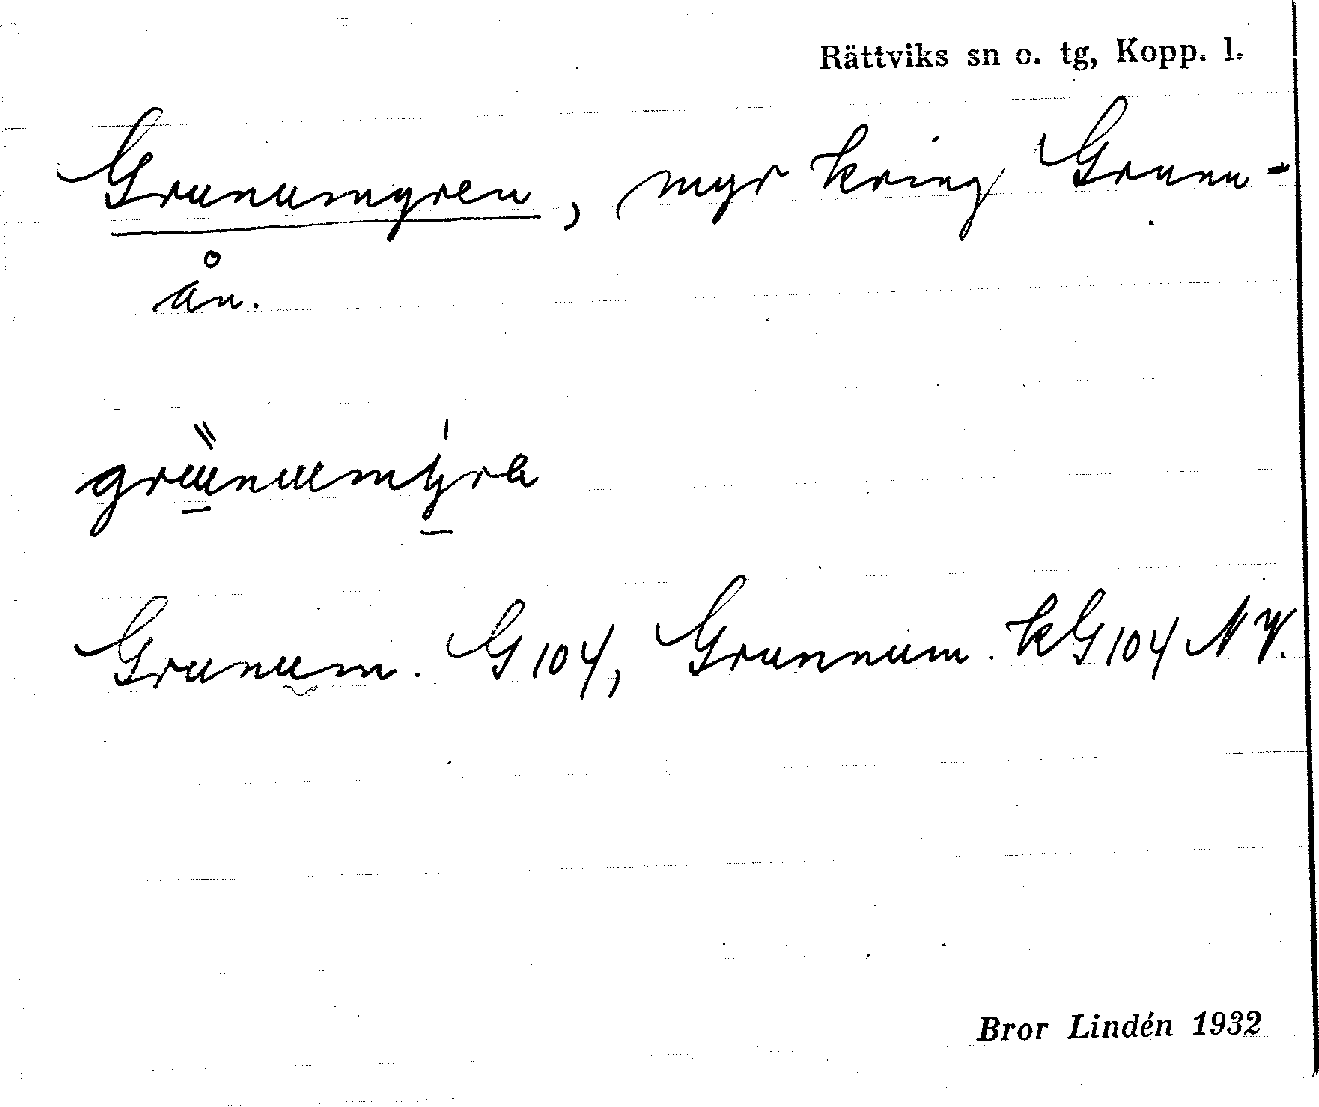 Rättviks sn o. tg, Kopp. l.
Grunumyren, myr kring Grunu-
ån.
Grunum. G 104, Grunnum. kG 104 NV.
Bror Lindén 1932